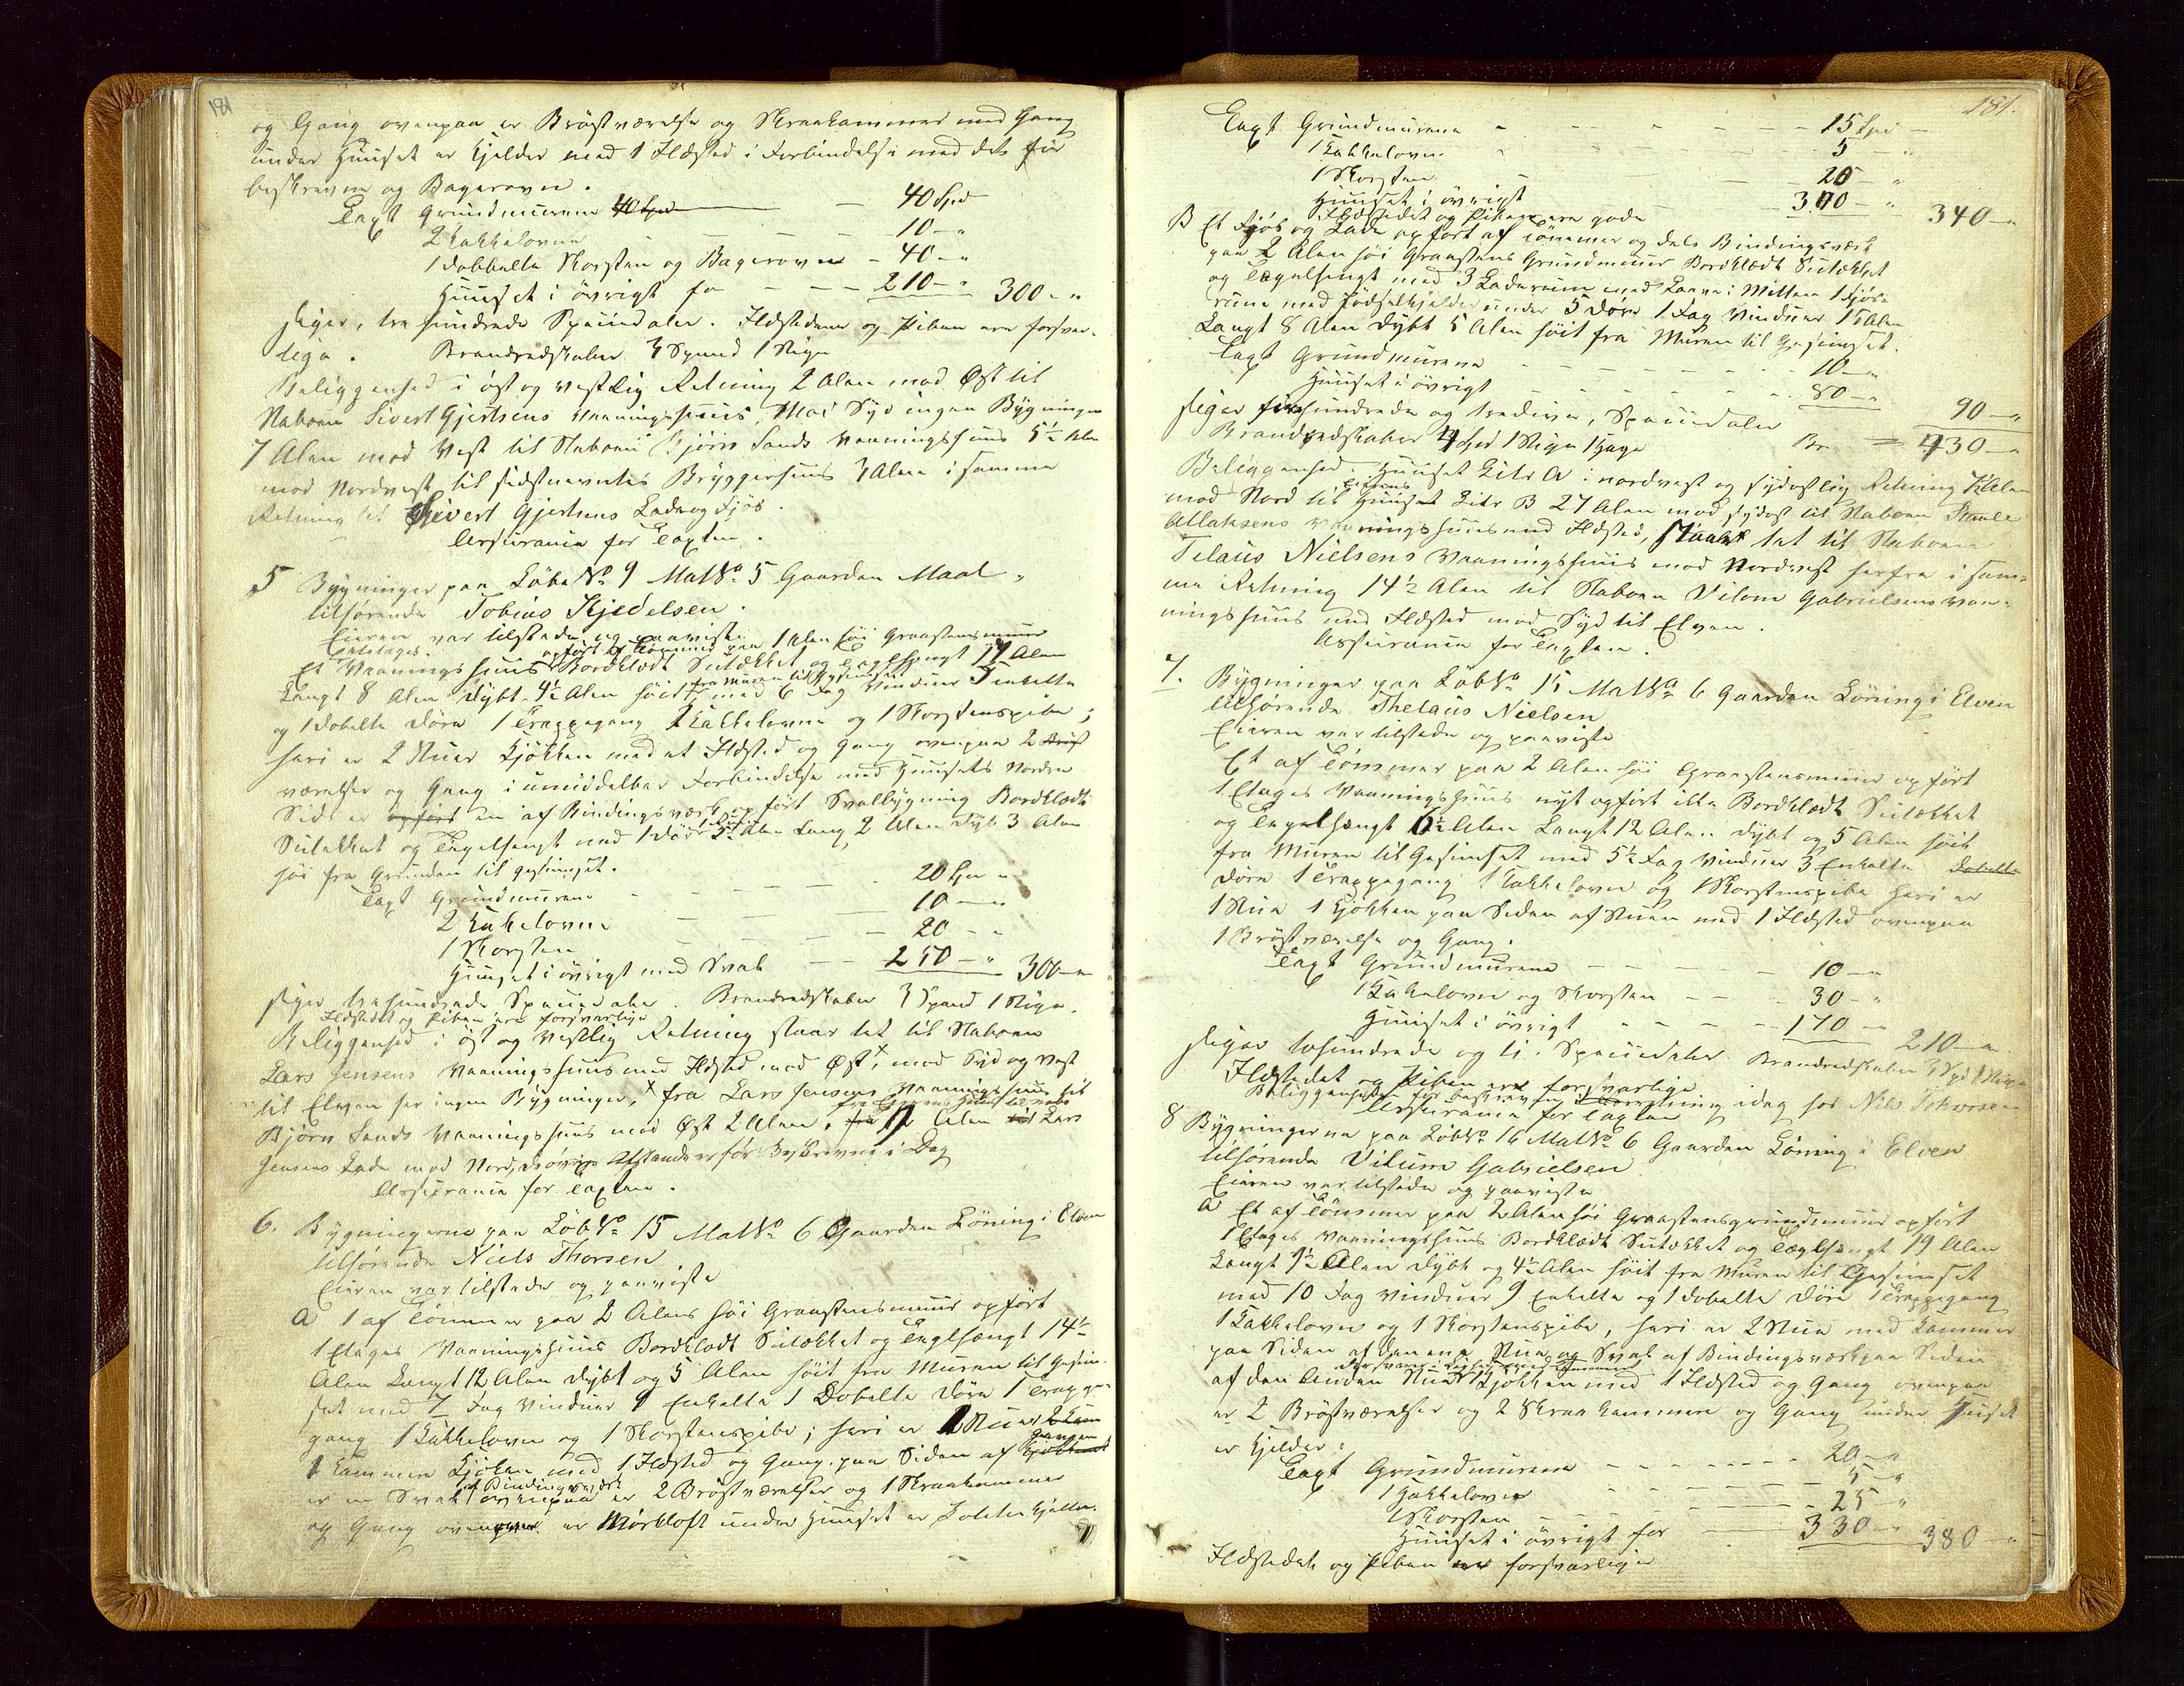 181
og Gang ovenpaa er Bröstværelse og Skraakammer med Gang
under Huuset er Kjelder med 1 Ildsted i Forbindelse med det før
beskrevne og Bagerovn.
Taxt Grundmurene 40 Spd — 40 Spd
2 Kakkelovne — 10 — "
1 dobbelte Skorsten og Bagerovn — 40 — "
Huuset i övrigt for — 210 — " 300 — "
siger, tre hundrede Speciedaler. Ildstederne og Piben ere forsvar-
lige. Brandredskaber 3 Spand 1 Stige
Beliggenhed i öst og vestlig Retning 2 Alen mod Øst til
Naboen Sivert Gjertsens Vaaningshuus, Mod Syd ingen Bygninger
7 Alen mod Vest til Naboen Bjørn Sands Vaaningshuus 5½ Alen
mod Nordvest til sidstnævntes Bryggerhuus 3 Alen i samme
Retning til Sivert Gjertsens Lade og Fjös.
Assurance for Taxten.
5 Bygninger paa Löbe No 9 Mat No 5 Gaarden Maal
tilhørende Tobias Kjedelsen.
Eieren var tilstede og paaviste
Et Etages Vaaningshuus opfört af Tömmer paa 1 Alen höi Graastensmuur
Bordklædt Sutækket og Teglhængt 11 Alen
Langt 8 Alen dybt 4½ Alen höit fra Muren til Gesimset med 6 Fag Vinduer 5 enkelte
og 1 dobelte Döre 1 Trappegang 2 Kakkelovne og 1 Skorstenspibe;
heri er 2 Stuer Kjökken med et Ildsted og Gang ovenpaa 2 Bröst
værelser og Gang i umiddelbar Forbindelse med Huusets Nordre
Side er opfört en af Bindingsværk opfört Svalbygning Bordklædt
Sutækket og Teglhængt med 1 Dör Alen Lang 2 Alen dyb 3 Alen
höi fra Grunden til Gesimset.
Taxt Grundmurene — 20 Spd "
2 Kakelovne — 10 — "
1 Skorsten — 20 — "
Huuset i övrigt med Sval — 250 — " 300 — "
siger tre hundrede Speciedaler. Brandredskaber 3 Spand 1 Stige.
Ildstedet og Piben ere forsvarlige
Beliggenhed i öst og vestlig Retning staar tet til Naboen
Lars Jensens Vaaningshuus med Ildsted mod Øst, x mod Syd og Vest
til Elven her ingen Bygninger, x fra Lars Jensens Vaaningshuus til
Bjørn Sands Vaaningshuus mod Øst 2 Alen, fra Eierens Huus 12 Alen til Lars
Jensens Lade mod Nord, övrige Afstande er för Beskrevne i Dag
Assurance for Taxten.
6. Bygningerne paa Löb No 15 Mat No 6 Gaarden Löning i Elven
tilhørende Niels Thorsen
Eieren var tilstede og paaviste
A 1 af Tömmer paa 2 Alens höi Graastensmuur opfört
1 Etages Vaaningshuus Bordklædt Sutækket og Teglhængt 14½
Alen Langt 12 Alen dybt og 5 Alen höit fra Muren til Gesim-
set med 7 Fag Vinduer 9 Enkelte 1 Dobelte Döre 1 Trappe-
gang 1 Kakkelovn og 1 Skorstenspibe; heri er 2 Stuer 2 Kam
1 Kammer Kjöken med 1 Ildsted og Gang. paa Siden af Gangen Kjökkenet
er en Sval af Bindingsværk ovenpaa er 2 Bröstværelser og 1 Skraakammer
og Gang ovenover er Mörkloft under Huuset er Potetes Kjelder.
181.
Taxt Grundmurene — 15 Spd —
1 Kakkelovn — 5 — "
1 Skorsten — 20 — "
Huuset i övrigt — 300 — " 340 — "
Ildstedet og Piben ere gode
B Et Fjös og Lade opfört af Tömmer og dels Bindingsværk
paa 2 Alen höi Graastens Grundmuur Bordklædt Sutækket
og Teglhængt med 3 Laderum med Laave i Mitten 1 Fjös
rum med Fødselkjelder under 5 Döre 1 Fag Vinduer 15 Alen
Langt 8 Alen dybt 5 Alen höit fra Muren til Gesimset.
Taxt Grundmurene — 10 — "
Huuset i övrigt — 80 — " 90 — "
siger firehundrede og tredive, Speciedaler = 430 — "
Brandredskaber 4 Spd 1 Stige 1 Hage
Beliggenhed. Huuset Litr A i nordvest og sydostlig Retning Alen
mod Nord til Eierens Huuset Litr B 27 Alen mod sydost til Naboen Staale
Atlaksens Vaaningshuus med Ildsted, Staar tet til Naboen
Telaus Nielsens Vaaningshuus mod Nordvest herfra i sam-
me Retning 14½ Alen til Naboen Vitom Gabrielsens Vaa-
ningshuus med Ildsted mod Syd til Elven.
Assurance for Taxten.
7. Bygninger paa Löb No 15 Mat No 6 Gaarden Löning i Elven
tilhørende Thelaus Nielsen
Eieren var tilstede og paaviste
Et af Tömmer paa 2 Alen höi Graastensmuur opfört
1 Etages Vaaningshuus nyt opfört ikke Bordklædt Sutækket
og Teglhængt Alen Langt 12 Alen dybt og 5 Alen höit
fra Muren til Gesimset med 5½ Fag Vinduer 3 Enkelte Dobelte
Döre 1 Trappegang 1 Kakkelovn og 1 Skorstenspibe heri er
1 Stue 1 Kjökken paa Siden af Stuen med 1 Ildsted ovenpaa
1 Bröstværelse og Gang.
Taxt Grundmurene — 10 — "
1 Kakelovn og Skorsten — 30 — "
Huuset i övrigt — 170 — " 210 — "
siger tohundrede og ti. Speciedaler Brandredskaber
Ildstedet og Piben ere forsvarlige
Beliggenheden for beskreven i Forretning idag hos Nils Tohrsen
Assurance for Taxten
8 Bygningerne paa Löb No 16 Mat No 6 Gaarden Löning i Elven
tilhørende Vitum Gabrielsen
Eieren var tilstede og paaviste
A Et af Tömmer paa 2 Alen höi Graastensgrundmuur opfört
1 Etages Vaaningshuus Bordklædt Sutækket og Teglhængt 19 Alen
Langt 9½ Alen dybt og 4½ Alen höit fra Muren til Gesimset
med 10 Fag Vinduer 9 Enkelte og 1 dobelte Döre 1 Trappegang
1 Kakkelovn og 1 Skorstenspibe, heri er 2 Stue med Kammer
paa Siden af den ene Stue og Sval af Bindingsværk paa Siden
af den Anden Stue Kjökken med 1 Ildsted og Gang ovenpaa
er 2 Bröstværelser og 2 Skraakammere og Gang under Huuset
er Kjelder.
Taxt Grundmurene — 20 — "
1 Kakkelovn — 5 — "
1 Skorsten — 25 — "
Huuset i övrigt for — 330 — " 380 — "
Ildstedet og Piben ere forsvarlige